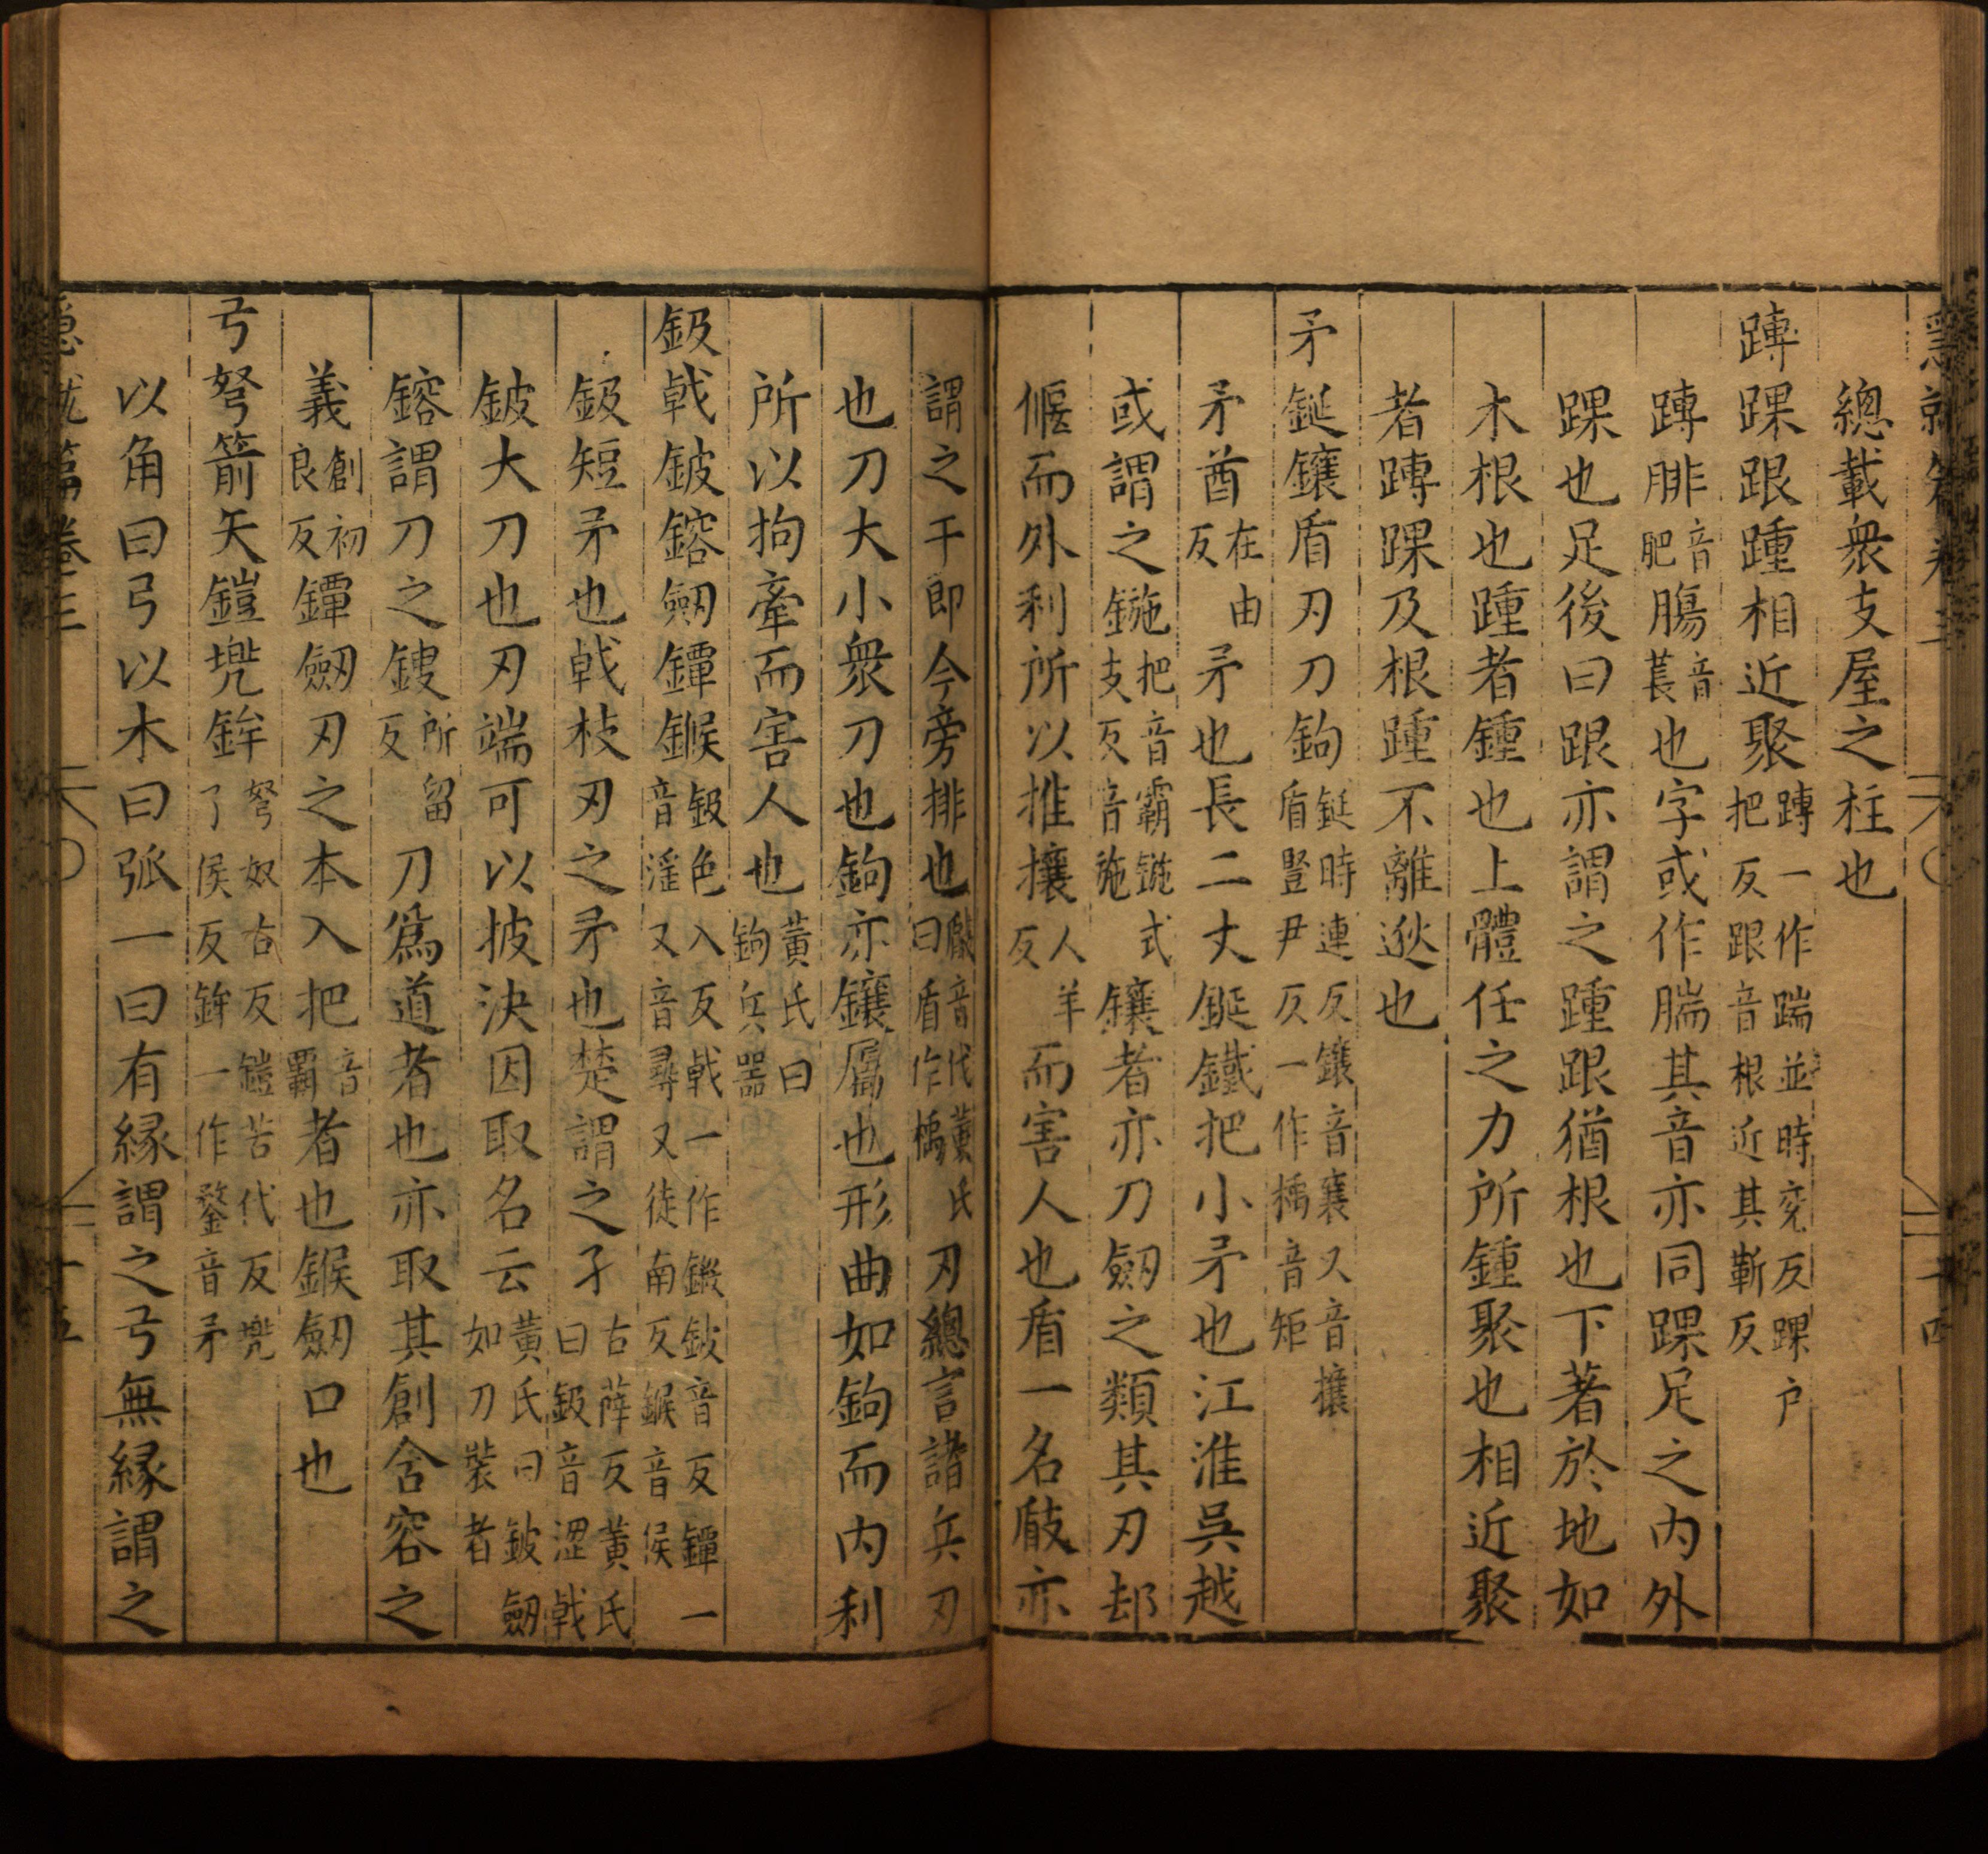 急就篇卷三
十四
總載衆支屋之柱也
䏝踝跟踵相近聚䏝一作踹並時兖反踝户把反跟音根近其靳反
䏝腓音肥腸音萇也字或作腨其音亦同踝足之内外
踝也足後曰跟亦謂之踵跟猶根也下著於地如
木根也踵者鍾也上體任之力所鍾聚也相近聚
者䏝踝及根踵不離逖也
矛鋋鑲盾刃刀鉤鋋時連反鑲音襄又音攘盾豎尹反一作楯音矩
矛酋在由反矛也長二丈鋋鐵把小矛也江淮吳越
或謂之鍦把音霸鍦式支反音施鑲者亦刀劒之類其刃却
偃而外利所以推攘人羊反而害人也盾一名瞂亦
謂之干即今旁排也瞂音代黄氏曰盾作楯刃總言諸兵刃
也刀大小衆刀也鉤亦鑲屬也形曲如鉤而内利
所以拘牽而害人也黄氏曰鉤兵器
鈒戟鈹鎔劒鐔鍭鈒色入反戟一作鏾鈹音反鐔一音淫又音尋又徒南反鍭音侯
鈒短矛也戟枝刃之矛也楚謂之孑古薛反黄氏曰鈒音澀戟
鈹大刀也刃端可以披決因取名云黄氏曰鈹劒如刀裝者
鎔謂刀之鎪所留反刀爲道者也亦取其創含容之
義創初良反鐔劒刃之本入把音霸者也鍭劒口也
弓弩箭矢鎧兠鉾弩奴古反鎧苦代反兠了侯反鉾一作鍪音矛
以角曰弓以木曰弧一曰有緣謂之弓無緣謂之
急就篇卷三
十五